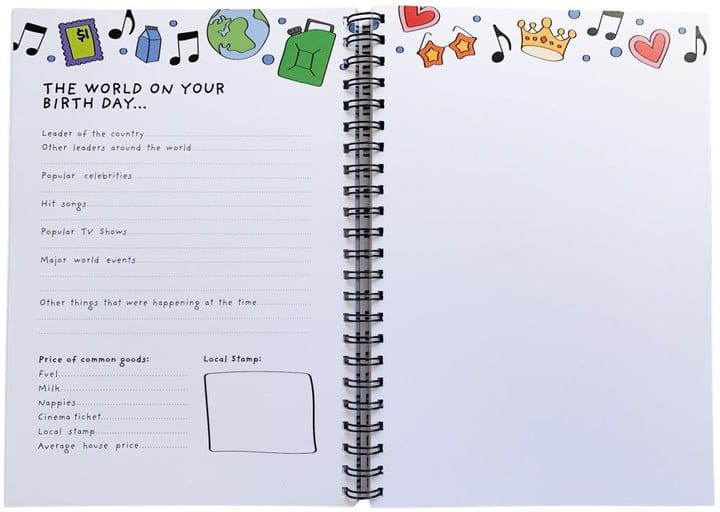 $1
THE WORLD ON YOUR
BIRTH DAY...
Leader of the country
Other leaders around the world
Popular celebrities
Hit songs
Popular TV Shows
Major world events
Other things that were happening at the time
Price of common goods:
Fuel
Milk
Nappies
Cinema ticket
Local stamp
Average house price
Local Stamp: